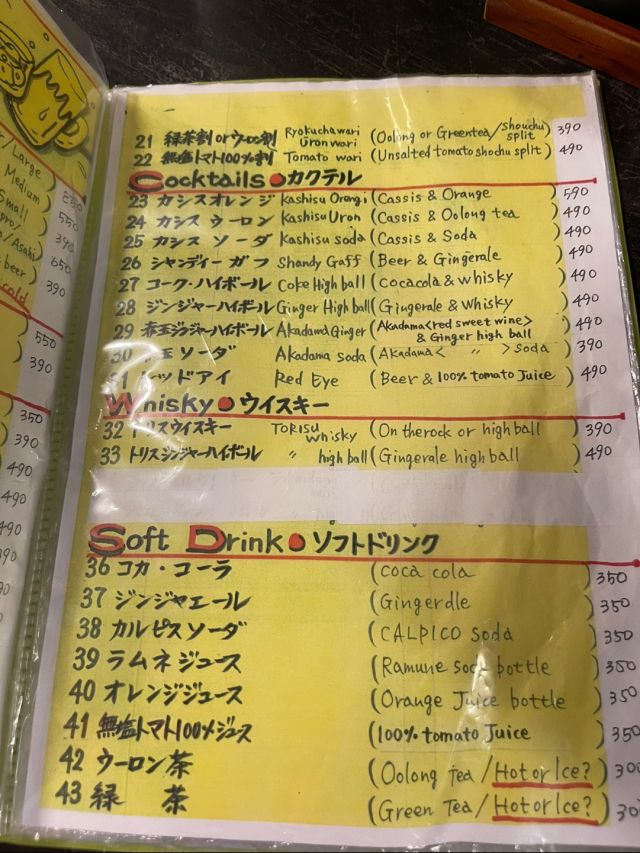 Large
Medium
Small
550
390
/Asahi
650
beer
390
cold
550
390
350
390
490
490
490
21 緑茶割orウーロン割 Ryokuchawari Uronwari (Oolong or Greentea/shouchu split 390
22 無塩トマト100%割 Tomato wari (Unsalted tomato shochu split) 490
Cocktails●カクテル
23 カシスオレンジ Kashisu Orengi (Cassis & Orange ) 590
24 カシス ウーロン Kashisu Uron (Cassis & Oolong tea ) 490
25 カシス ソーダ Kashisu soda (Cassis & Soda ) 490
26 シャンディー ガフ Shandy Gaff (Beer & Gingerale ) 490
27 コーク・ハイボール Coke High ball (cocacola & whisky ) 490
28 ジンジャーハイボール Ginger High ball (Gingerale & Whisky ) 490
29 赤玉ジンジャーハイボール Akadama Ginger (Akadama<red sweet wine> & Ginger high ball ) 490
30 玉ソーダ Akadama soda (Akadama< 〃 >soda ) 390
レッドアイ Red Eye (Beer & 100% tomato Juice ) 490
Whisky●ウイスキー
32 トリスウイスキー TORISU whisky (On the rock or high ball ) 390
33 トリスジンジャーハイボール 〃 high ball (Gingerale high ball ) 490
Soft Drink●ソフトドリンク
36 コカ・コーラ (coca cola ) 350
37 ジンジャエール (Gingerale ) 350
38 カルピスソーダ (CALPICO soda ) 350
39 ラムネジュース (Ramune bottle ) 350
40 オレンジジュース (Orange Juice bottle ) 350
41 無塩トマト100%ジュース (100% tomato Juice ) 350
42 ウーロン茶 (Oolong Tea / Hot or Ice? ) 300
43 緑 茶 (Green Tea / Hot or Ice? ) 30